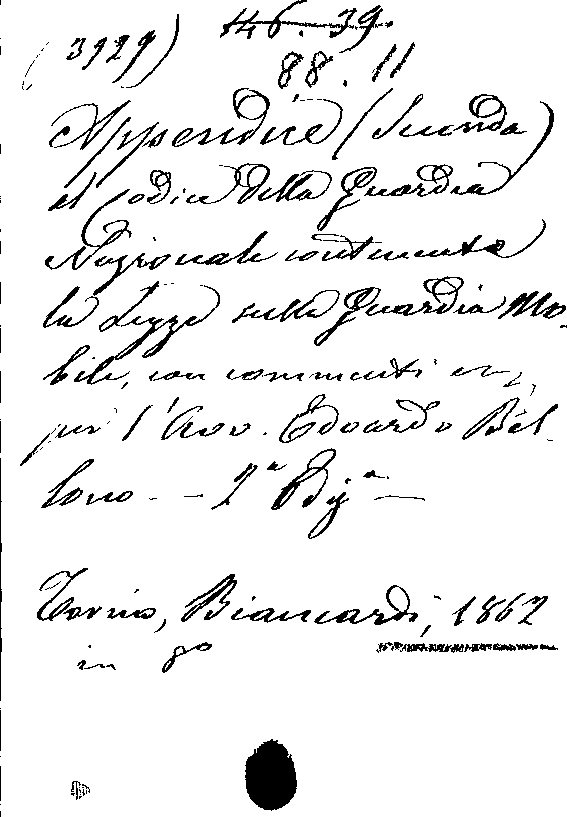 (3929) 146.39.
88.11
Appendice (Seconda)
al Codice della Guardia
Nazionale contenente
la Legge sulla Guardia Mo-
bile, con commenti
per l'Avv. Edoardo Bel-
lono - - 2ª Diz.ª -
Torino, Biancardi, 1862
in 8º